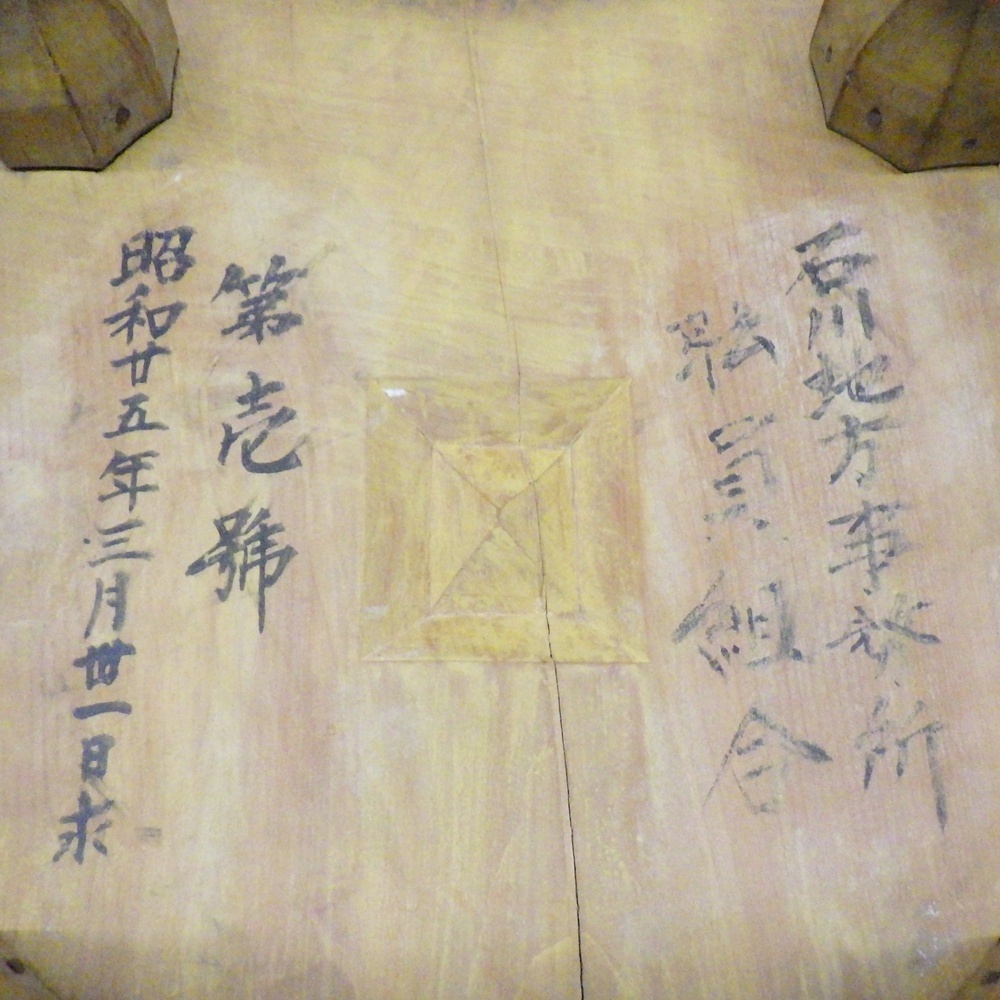 石川地方事务所
职員組合
第壱號
昭和廿五年三月卅一日求